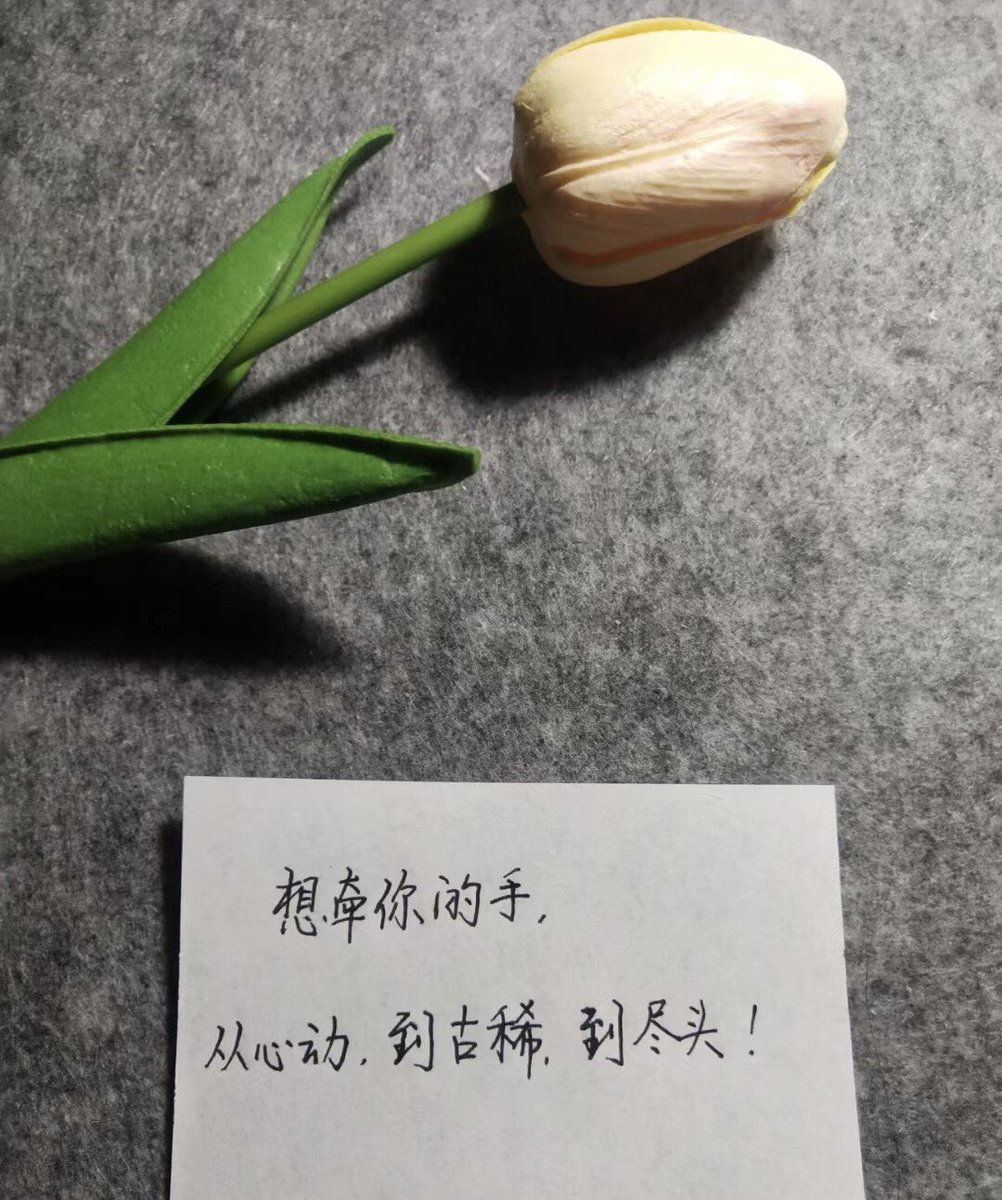 想牵你的手,
从心动,到古稀,到尽头!